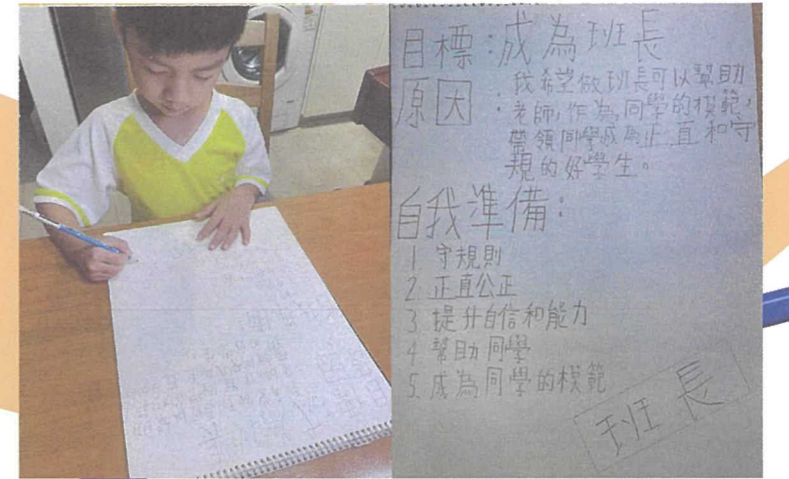 目標：成為班長
原因：我希望做班長可以幫助
老師，作為同學的模範，
帶領同學成為正直和守
規的好學生。
自我準備：
1. 守規則
2. 正直公正
3. 提升自信和能力
4. 幫助同學
5. 成為同學的模範
班長